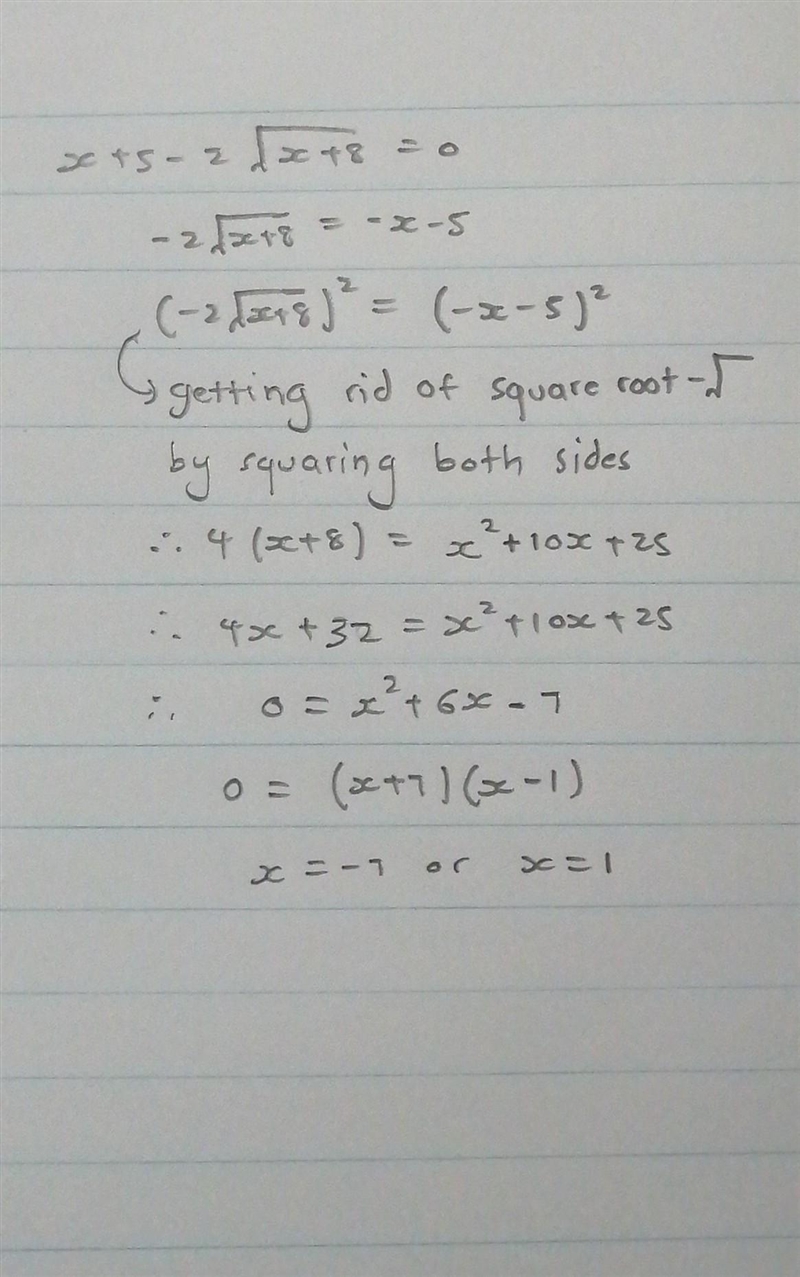 x+5-2√(x+8) = 0
-2√(x+8) = -x-5
(-2√(x+8))² = (-x-5)²
getting rid of square root-√
by squaring both sides
∴ 4(x+8) = x²+10x+25
∴ 4x+32 = x²+10x+25
∴ 0 = x²+6x-7
0 = (x+7)(x-1)
x = -7 or x=1